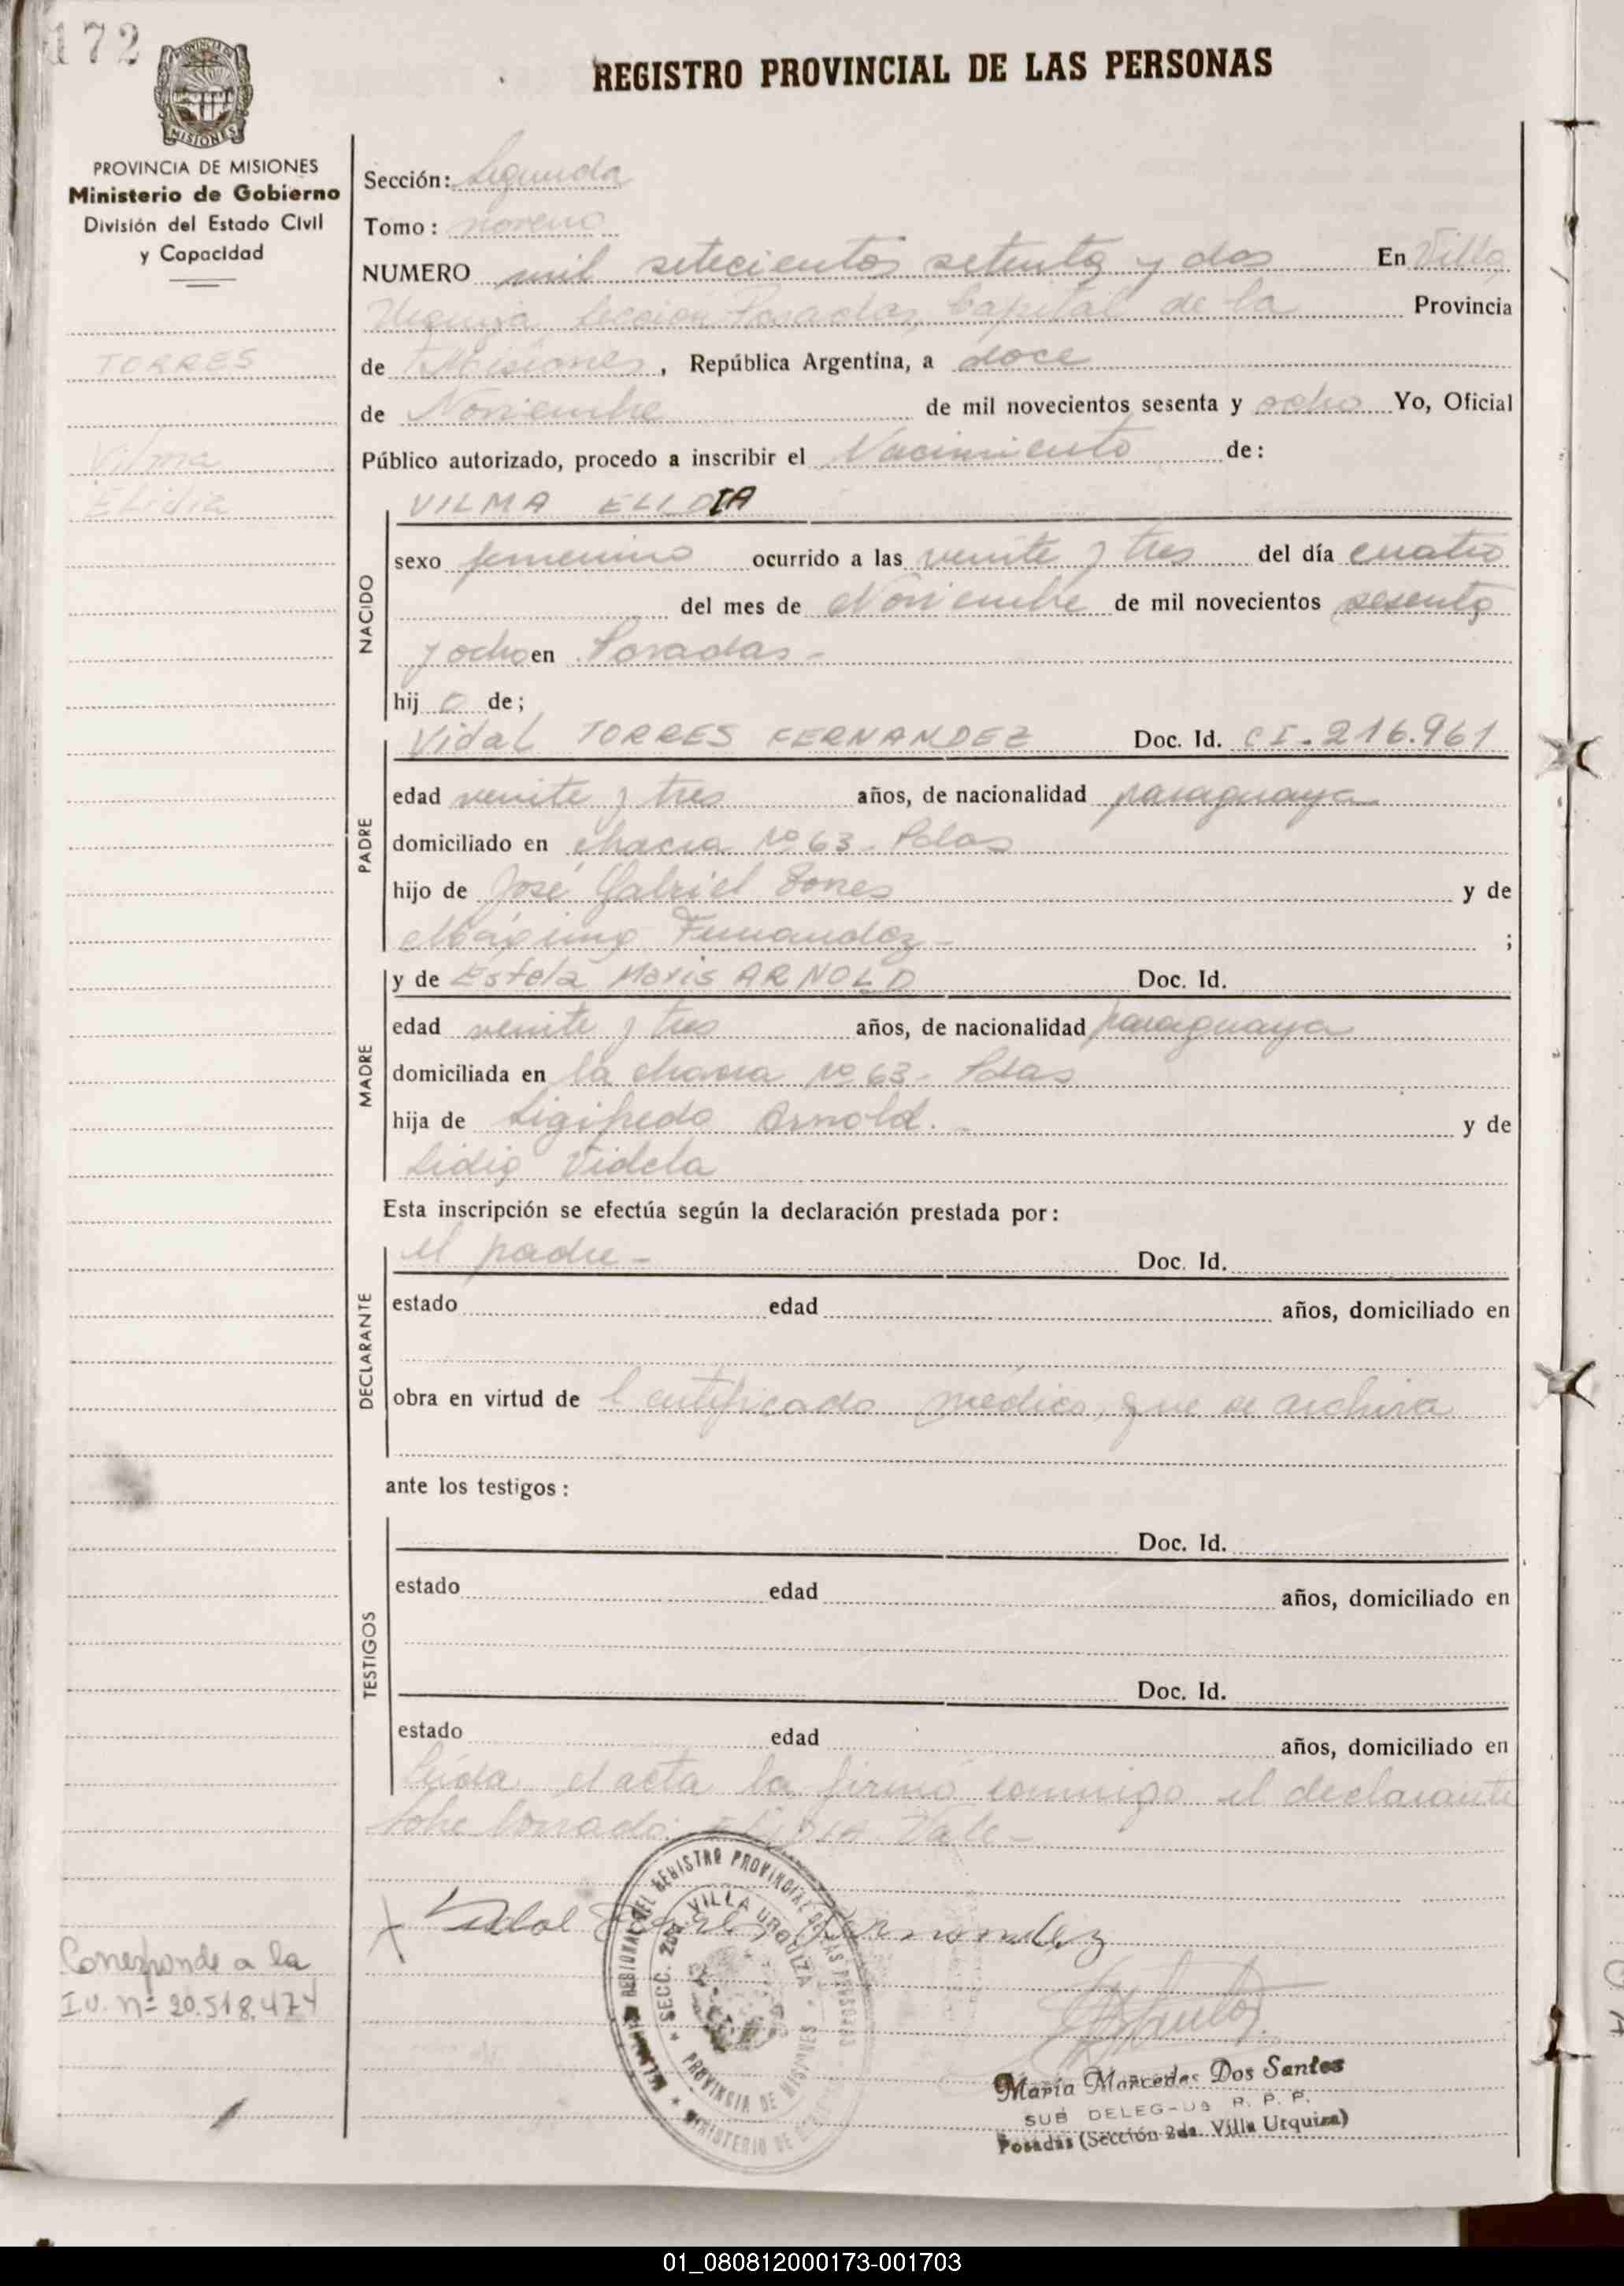 172
REGISTRO PROVINCIAL DE LAS PERSONAS
MISIONES
PROVINCIA DE MISIONES
Ministerio de Gobierno
División del Estado Civil
y Capacidad
TORRES
Vilma
Elidia
Sección: Segunda
Tomo: noveno
NUMERO mil setecientos setenta y dos En Villa
Urquiza Sección Posadas, Capital de la Provincia
de Misiones, República Argentina, a doce
de Noviembre de mil novecientos sesenta y ocho Yo, Oficial
Público autorizado, procedo a inscribir el Nacimiento de:
NACIDO
VILMA ELIDIA
sexo femenino ocurrido a las veinte y tres del día cuatro
del mes de Noviembre de mil novecientos sesenta
y ocho en Posadas -
hij o de;
PADRE
Vidal TORRES FERNANDEZ Doc. Id. CI. 216.961
edad veinte y tres años, de nacionalidad paraguaya
domiciliado en chacra Nº 63 - Pdas
hijo de José Gabriel Torres y de
Máxima Fernandez - ;
MADRE
y de Estela Maris ARNOLD Doc. Id.
edad veinte y tres años, de nacionalidad paraguaya
domiciliada en la chacra Nº 63 - Pdas
hija de Sigifredo Arnold. - y de
Lidia Videla
Esta inscripción se efectúa según la declaración prestada por:
DECLARANTE
el padre - Doc. Id.
estado edad años, domiciliado en
obra en virtud de Certificado médico, que se archiva
ante los testigos:
TESTIGOS
Doc. Id.
estado edad años, domiciliado en
Doc. Id.
estado edad años, domiciliado en
Leída el acta la firmó conmigo el declarante
Sobre borrado: ELIDIA Vale -
Vidal Torres Fernandez
REGISTRO PROVINCIAL DE LAS PERSONAS
SECC. 2da. VILLA URQUIZA
PROVINCIA DE MISIONES
MINISTERIO DE
Corresponde a la
I.U. nº 20.518.474
María Mercedes Dos Santos
SUB DELEG-DA R. P. P.
Posadas (Sección 2da. Villa Urquiza)
01_080812000173-001703